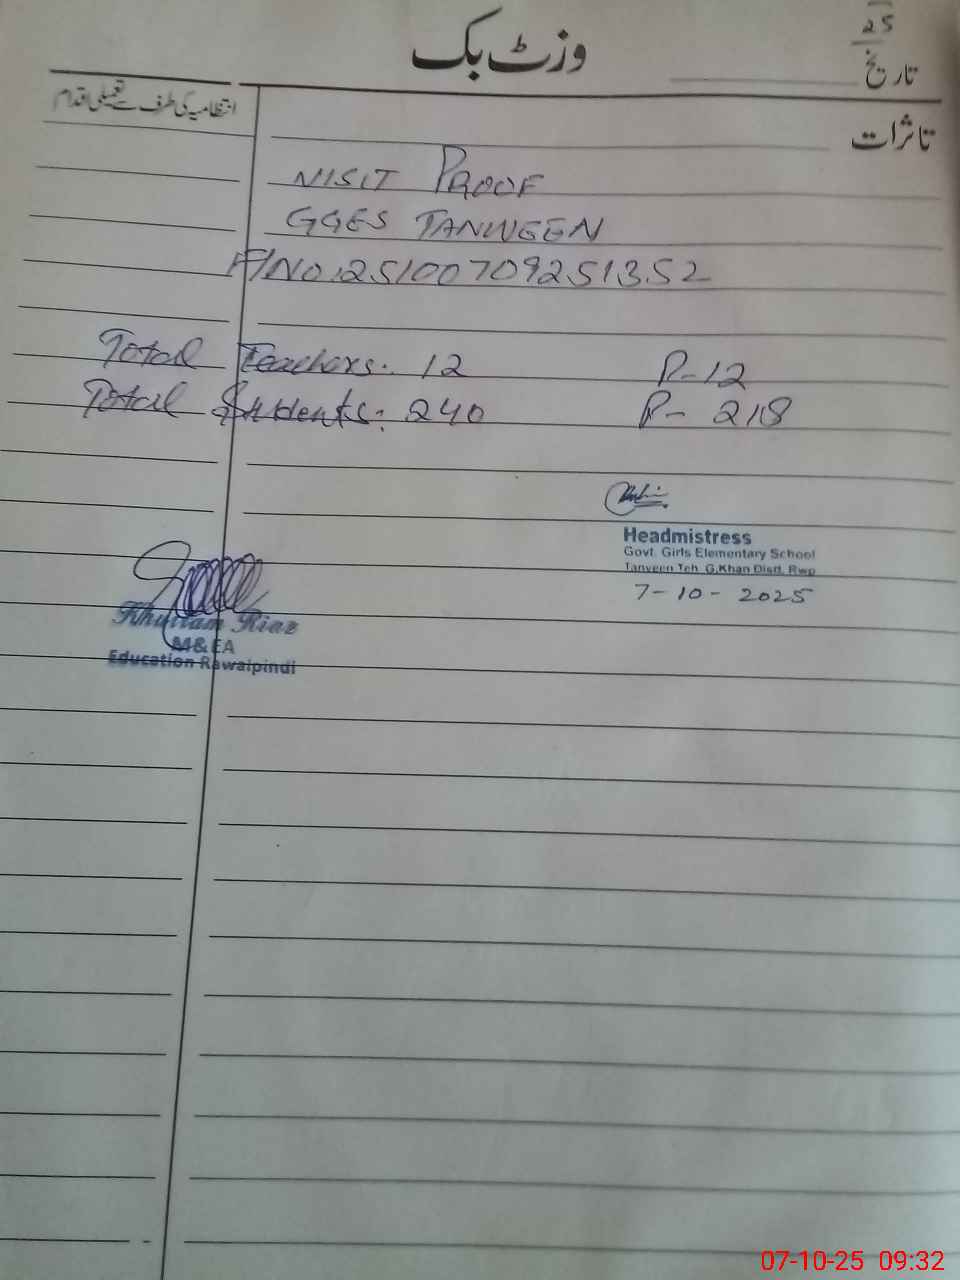 25
وزٹ بک
تاریخ
انتظامیہ کی طرف سے تعمیلی اقدام
تاثرات
VISIT PROOF
GGES TANWEEN
F/NO:25100709251352
Total Teachers:. 12 P-12
Total Students: 240 P- 218
Headmistress
Govt. Girls Elementary School
Tanveen Teh. G.Khan Distt. Rwp
7-10-2025
Khurram Riaz
M&EA
Education Rawalpindi
07-10-25 09:32